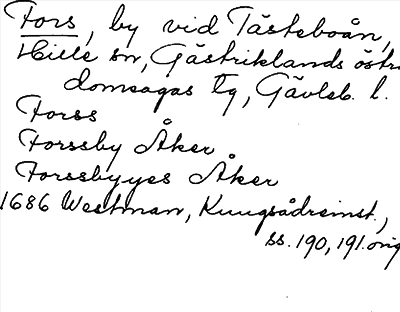 Fors, by vid Tästeboån,
Hille sn, Gästriklands östra
domsagas tg, Gävleb. l.
Forss
Forssby Åker
Forssbyyes Åker
1686 Westman, Kungsådreinst.,
ss. 190, 191. orig